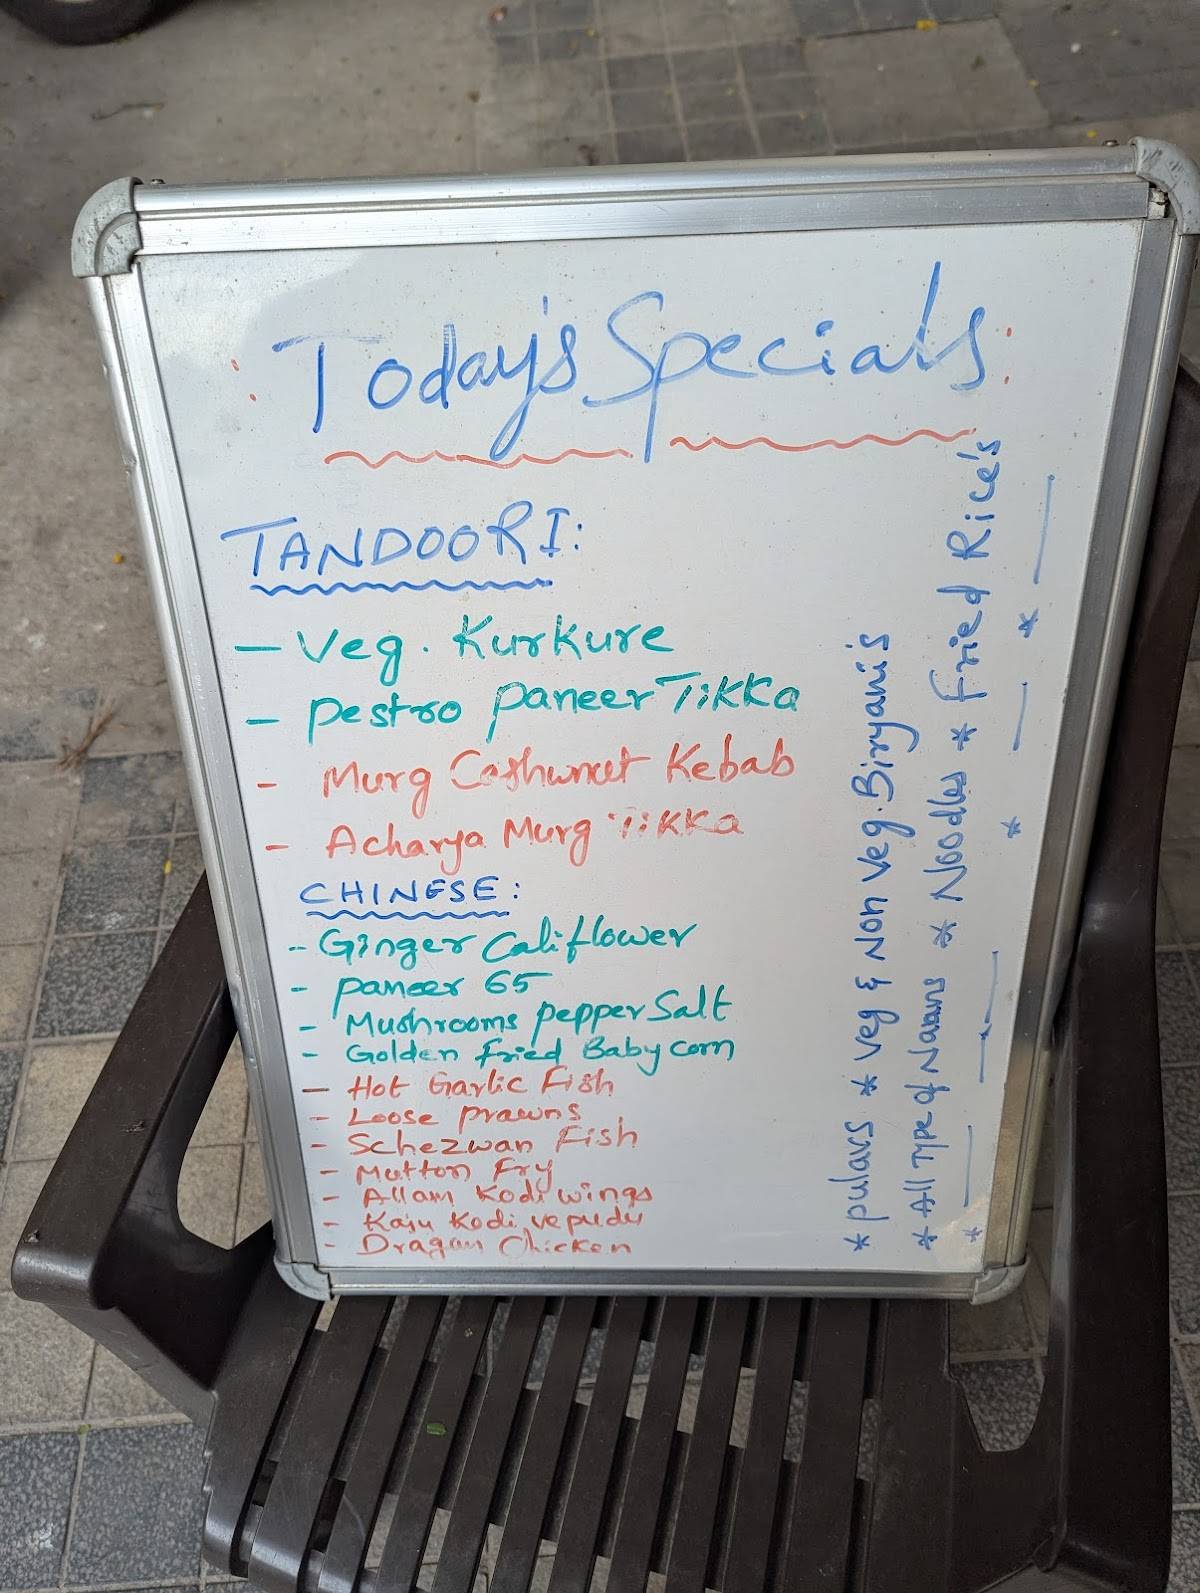 Today's Specials
TANDOORI:
- Veg. Kurkure
- Pestro Paneer Tikka
- Murg Cashwnut Kebab
- Acharya Murg Tikka
CHINESE:
- Ginger Califlower
- Paneer 65
- Mushrooms pepper Salt
- Golden Fried Baby corn
- Hot Garlic Fish
- Loose prawns
- Schezwan Fish
- Mutton Fry
- Allam Kodi wings
- Kaju Kodi vepudu
- Dragan Chicken
* pulavs * veg & Non Veg. Biryani's
* All Type of Naans * Noodles * Fried Rice's